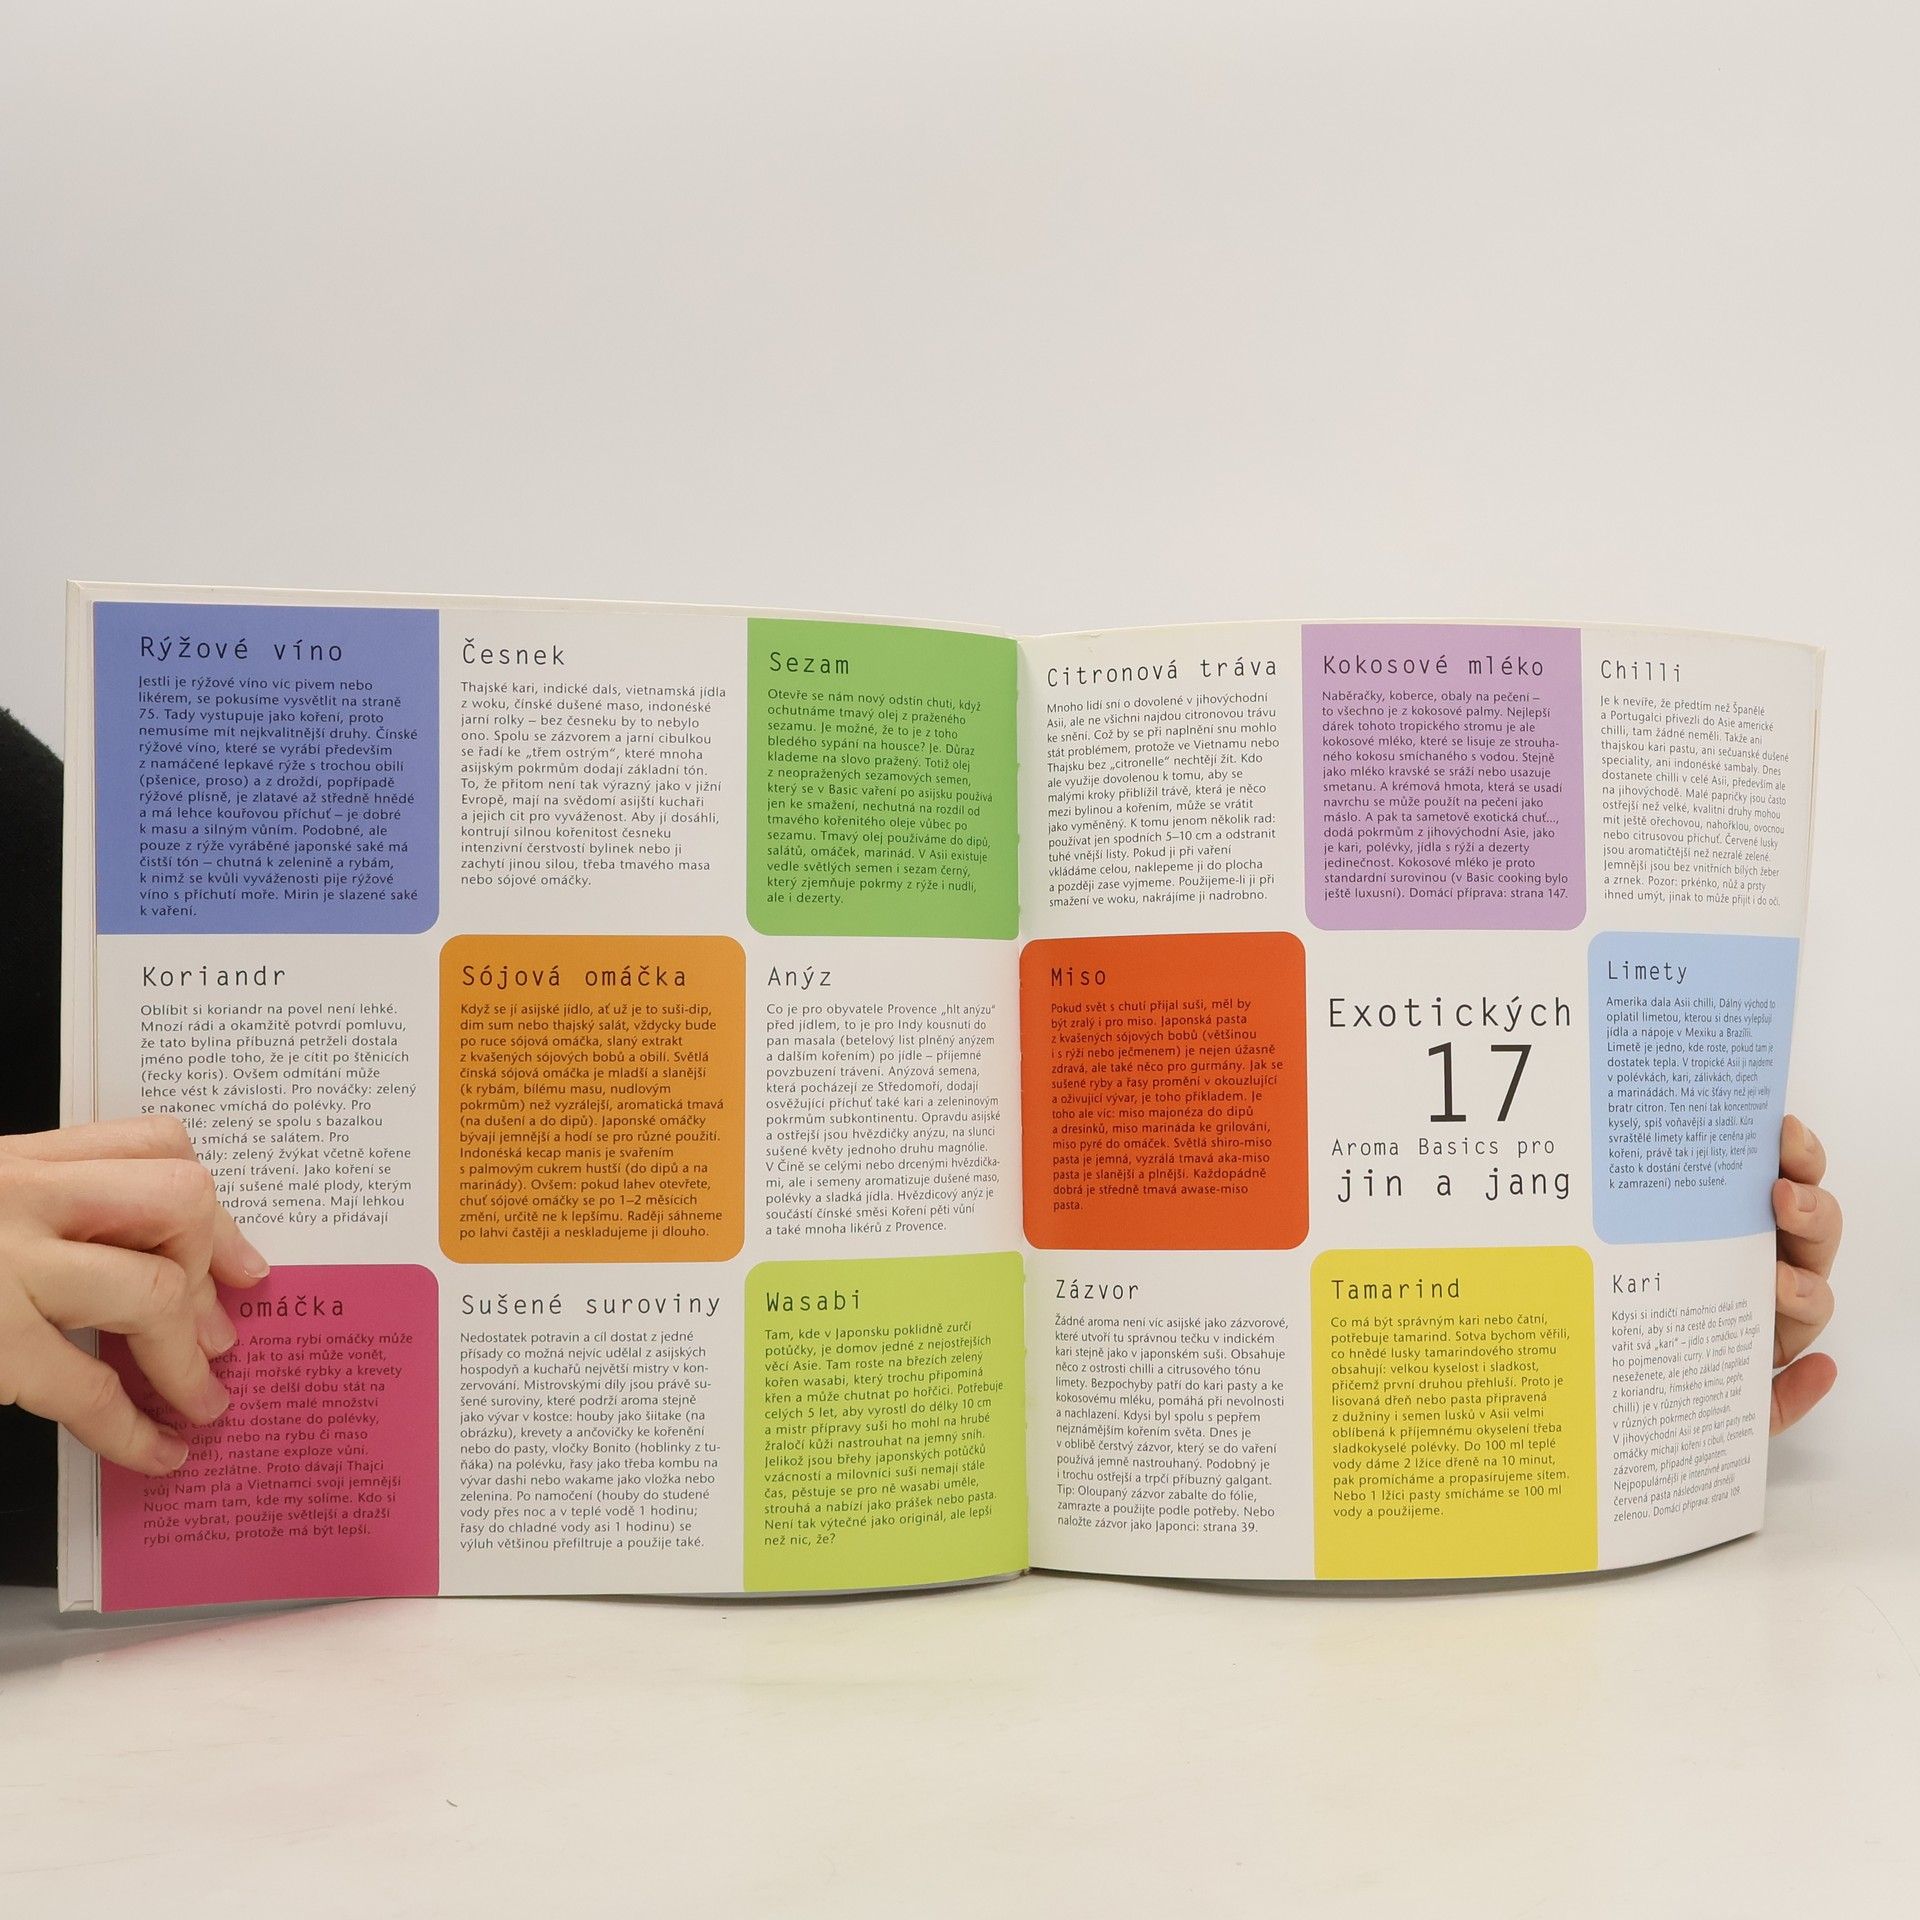 Rýžové víno
Jestli je rýžové víno víc pivem nebo
likérem, se pokusíme vysvětlit na straně
75. Tady vystupuje jako koření, proto
nemusíme mít nejkvalitnější druhy. Čínské
rýžové víno, které se vyrábí především
z namáčené lepkavé rýže s trochou obilí
(pšenice, proso) a z droždí, popřípadě
rýžové plísně, je zlatavé až středně hnědé
a má lehce kouřovou příchuť – je dobré
k masu a silným vůním. Podobné, ale
pouze z rýže vyráběné japonské saké má
čistší tón – chutná k zelenině a rybám,
k nimž se kvůli vyváženosti pije rýžové
víno s příchutí moře. Mirin je slazené saké
k vaření.
Česnek
Thajské kari, indické dals, vietnamská jídla
z woku, čínské dušené maso, indonéské
jarní rolky – bez česneku by to nebylo
ono. Spolu se zázvorem a jarní cibulkou
se řadí ke „třem ostrým“, které mnoha
asijským pokrmům dodají základní tón.
To, že přitom není tak výrazný jako v jižní
Evropě, mají na svědomí asijští kuchaři
a jejich cit pro vyváženost. Aby jí dosáhli,
kontrují silnou kořenitost česneku
intenzivní čerstvostí bylinek nebo ji
zachytí jinou silou, třeba tmavého masa
nebo sójové omáčky.
Sezam
Otevře se nám nový odstín chuti, když
ochutnáme tmavý olej z praženého
sezamu. Je možné, že to je z toho
bledého sypání na housce? Je. Důraz
klademe na slovo pražený. Totiž olej
z nepražených sezamových semen,
který se v Basic vaření po asijsku používá
jen ke smažení, nechutná na rozdíl od
tmavého kořenitého oleje vůbec po
sezamu. Tmavý olej používáme do dipů,
salátů, omáček, marinád. V Asii existuje
vedle světlých semen i sezam černý,
který zjemňuje pokrmy z rýže i nudlí,
ale i dezerty.
Koriandr
Oblíbit si koriandr na povel není lehké.
Mnozí rádi a okamžitě potvrdí pomluvu,
že tato bylina příbuzná petrželi dostala
jméno podle toho, že je cítit po štěnicích
(řecky koris). Ovšem odmítání může
lehce vést k závislosti. Pro nováčky: zelený
se nakonec vmíchá do polévky. Pro
zelený se spolu s bazalkou
smíchá se salátem. Pro
zelený žvýkat včetně kořene
trávení. Jako koření se
sušené malé plody, kterým
semena. Mají lehkou
kůry a přidávají
Sójová omáčka
Když se jí asijské jídlo, ať už je to suši-dip,
dim sum nebo thajský salát, vždycky bude
po ruce sójová omáčka, slaný extrakt
z kvašených sójových bobů a obilí. Světlá
čínská sójová omáčka je mladší a slanější
(k rybám, bílému masu, nudlovým
pokrmům) než vyzrálejší, aromatická tmavá
(na dušení a do dipů). Japonské omáčky
bývají jemnější a hodí se pro různé použití.
Indonéská kecap manis je svařením
s palmovým cukrem hustší (do dipů a na
marinády). Ovšem: pokud lahev otevřete,
chuť sójové omáčky se po 1–2 měsících
změní, určitě ne k lepšímu. Raději sáhneme
po lahvi častěji a neskladujeme ji dlouho.
Anýz
Co je pro obyvatele Provence „hlt anýzu“
před jídlem, to je pro Indy kousnutí do
pan masala (betelový list plněný anýzem
a dalším kořením) po jídle – příjemné
povzbuzení trávení. Anýzová semena,
která pocházejí ze Středomoří, dodají
osvěžující příchuť také kari a zeleninovým
pokrmům subkontinentu. Opravdu asijské
a ostřejší jsou hvězdičky anýzu, na slunci
sušené květy jednoho druhu magnólie.
V Číně se celými nebo drcenými hvězdička-
mi, ale i semeny aromatizuje dušené maso,
polévky a sladká jídla. Hvězdicový anýz je
součástí čínské směsi Koření pěti vůní
a také mnoha likérů z Provence.
omáčka
Aroma rybí omáčky může
Jak to asi může vonět,
mořské rybky a krevety
se delší dobu stát na
ovšem malé množství
dostane do polévky,
dipu nebo na rybu či maso
nastane exploze vůní.
zezlátne. Proto dávají Thajci
svůj Nam pla a Vietnamci svoji jemnější
Nuoc mam tam, kde my solíme. Kdo si
může vybrat, použije světlejší a dražší
rybí omáčku, protože má být lepší.
Sušené suroviny
Nedostatek potravin a cíl dostat z jedné
přísady co možná nejvíc udělal z asijských
hospodyň a kuchařů největší mistry v kon-
zervování. Mistrovskými díly jsou právě su-
šené suroviny, které podrží aroma stejně
jako vývar v kostce: houby jako šiitake (na
obrázku), krevety a ančovičky ke kořenění
nebo do pasty, vločky Bonito (hoblinky z tu-
ňáka) na polévku, řasy jako třeba kombu na
vývar dashi nebo wakame jako vložka nebo
zelenina. Po namočení (houby do studené
vody přes noc a v teplé vodě 1 hodinu;
řasy do chladné vody asi 1 hodinu) se
výluh většinou přefiltruje a použije také.
Wasabi
Tam, kde v Japonsku poklidně zurčí
potůčky, je domov jedné z nejostřejších
věcí Asie. Tam roste na březích zelený
kořen wasabi, který trochu připomíná
křen a může chutnat po hořčici. Potřebuje
celých 5 let, aby vyrostl do délky 10 cm
a mistr přípravy suši ho mohl na hrubé
žraločí kůži nastrouhat na jemný sníh.
Jelikož jsou břehy japonských potůčků
vzácností a milovníci suši nemají stále
čas, pěstuje se pro ně wasabi uměle,
strouhá a nabízí jako prášek nebo pasta.
Není tak výtečné jako originál, ale lepší
než nic, že?
Citronová tráva
Mnoho lidí sní o dovolené v jihovýchodní
Asii, ale ne všichni najdou citronovou trávu
ke snění. Což by se při naplnění snu mohlo
stát problémem, protože ve Vietnamu nebo
Thajsku bez „citronelle“ nechtějí žít. Kdo
ale využije dovolenou k tomu, aby se
malými kroky přiblížil trávě, která je něco
mezi bylinou a kořením, může se vrátit
jako vyměněný. K tomu jenom několik rad:
používat jen spodních 5–10 cm a odstranit
tuhé vnější listy. Pokud ji při vaření
vkládáme celou, naklepeme ji do plocha
a později zase vyjmeme. Použijeme-li ji při
smažení ve woku, nakrájíme ji nadrobno.
Kokosové mléko
Naběračky, koberce, obaly na pečení –
to všechno je z kokosové palmy. Nejlepší
dárek tohoto tropického stromu je ale
kokosové mléko, které se lisuje ze strouha-
ného kokosu smíchaného s vodou. Stejně
jako mléko kravské se sráží nebo usazuje
smetanu. A krémová hmota, která se usadí
navrchu se může použít na pečení jako
máslo. A pak ta sametově exotická chuť...,
dodá pokrmům z jihovýchodní Asie, jako
je kari, polévky, jídla s rýží a dezerty
jedinečnost. Kokosové mléko je proto
standardní surovinou (v Basic cooking bylo
ještě luxusní). Domácí příprava: strana 147.
Chilli
Je k nevíře, že předtím než Španělé
a Portugalci přivezli do Asie americké
chilli, tam žádné neměli. Takže ani
thajskou kari pastu, ani sečuanské dušené
speciality, ani indonéské sambaly. Dnes
dostanete chilli v celé Asii, především ale
na jihovýchodě. Malé papričky jsou často
ostřejší než velké, kvalitní druhy mohou
mít ještě ořechovou, nahořklou, ovocnou
nebo citrusovou příchuť. Červené lusky
jsou aromatičtější než nezralé zelené.
Jemnější jsou bez vnitřních bílých žeber
a zrnek. Pozor: prkénko, nůž a prsty
ihned umýt, jinak to může přijít i do očí.
Miso
Pokud svět s chutí přijal suši, měl by
být zralý i pro miso. Japonská pasta
z kvašených sójových bobů (většinou
i s rýží nebo ječmenem) je nejen úžasně
zdravá, ale také něco pro gurmány. Jak se
sušené ryby a řasy promění v okouzlující
a oživující vývar, je toho příkladem. Je
toho ale víc: miso majonéza do dipů
a dresinků, miso marináda ke grilování,
miso pyré do omáček. Světlá shiro-miso
pasta je jemná, vyzrálá tmavá aka-miso
pasta je slanější a plnější. Každopádně
dobrá je středně tmavá awase-miso
pasta.
Exotických
17
Aroma Basics pro
jin a jang
Limety
Amerika dala Asii chilli, Dálný východ to
oplatil limetou, kterou si dnes vylepšují
jídla a nápoje v Mexiku a Brazílii.
Limetě je jedno, kde roste, pokud tam je
dostatek tepla. V tropické Asii ji najdeme
v polévkách, kari, zálivkách, dipech
a marinádách. Má víc šťávy než její velký
bratr citron. Ten není tak koncentrovaně
kyselý, spíš voňavější a sladší. Kůra
svraštělé limety kaffir je ceněna jako
koření, právě tak i její listy, které jsou
často k dostání čerstvé (vhodné
k zamrazení) nebo sušené.
Zázvor
Žádné aroma není víc asijské jako zázvorové,
které utvoří tu správnou tečku v indickém
kari stejně jako v japonském suši. Obsahuje
něco z ostrosti chilli a citrusového tónu
limety. Bezpochyby patří do kari pasty a ke
kokosovému mléku, pomáhá při nevolnosti
a nachlazení. Kdysi byl spolu s pepřem
nejznámějším kořením světa. Dnes je
v oblibě čerstvý zázvor, který se do vaření
používá jemně nastrouhaný. Podobný je
i trochu ostřejší a trpčí příbuzný galgant.
Tip: Oloupaný zázvor zabalte do fólie,
zamrazte a použijte podle potřeby. Nebo
naložte zázvor jako Japonci: strana 39.
Tamarind
Co má být správným kari nebo čatní,
potřebuje tamarind. Sotva bychom věřili,
co hnědé lusky tamarindového stromu
obsahují: velkou kyselost i sladkost,
přičemž první druhou přehluší. Proto je
lisovaná dřeň nebo pasta připravená
z dužniny i semen lusků v Asii velmi
oblíbená k příjemnému okyselení třeba
sladkokyselé polévky. Do 100 ml teplé
vody dáme 2 lžíce dřeně na 10 minut,
pak promícháme a propasírujeme sítem.
Nebo 1 lžíci pasty smícháme se 100 ml
vody a použijeme.
Kari
Kdysi si indičtí námořníci dělali směs
koření, aby si na cestě do Evropy mohli
vařit svá „kari“ – jídlo s omáčkou. V Anglii
ho pojmenovali curry. V Indii ho dosud
neseženete, ale jeho základ (například
z koriandru, římského kmínu, pepře,
chilli) je v různých regionech a také
v různých pokrmech doplňován.
V jihovýchodní Asii se pro kari pasty nebo
omáčky míchají koření s cibulí, česnekem,
zázvorem, případně galgantem;
Nejpopulárnější je intenzivně aromatická
červená pasta následovaná drsnější
zelenou. Domácí příprava: strana 109.